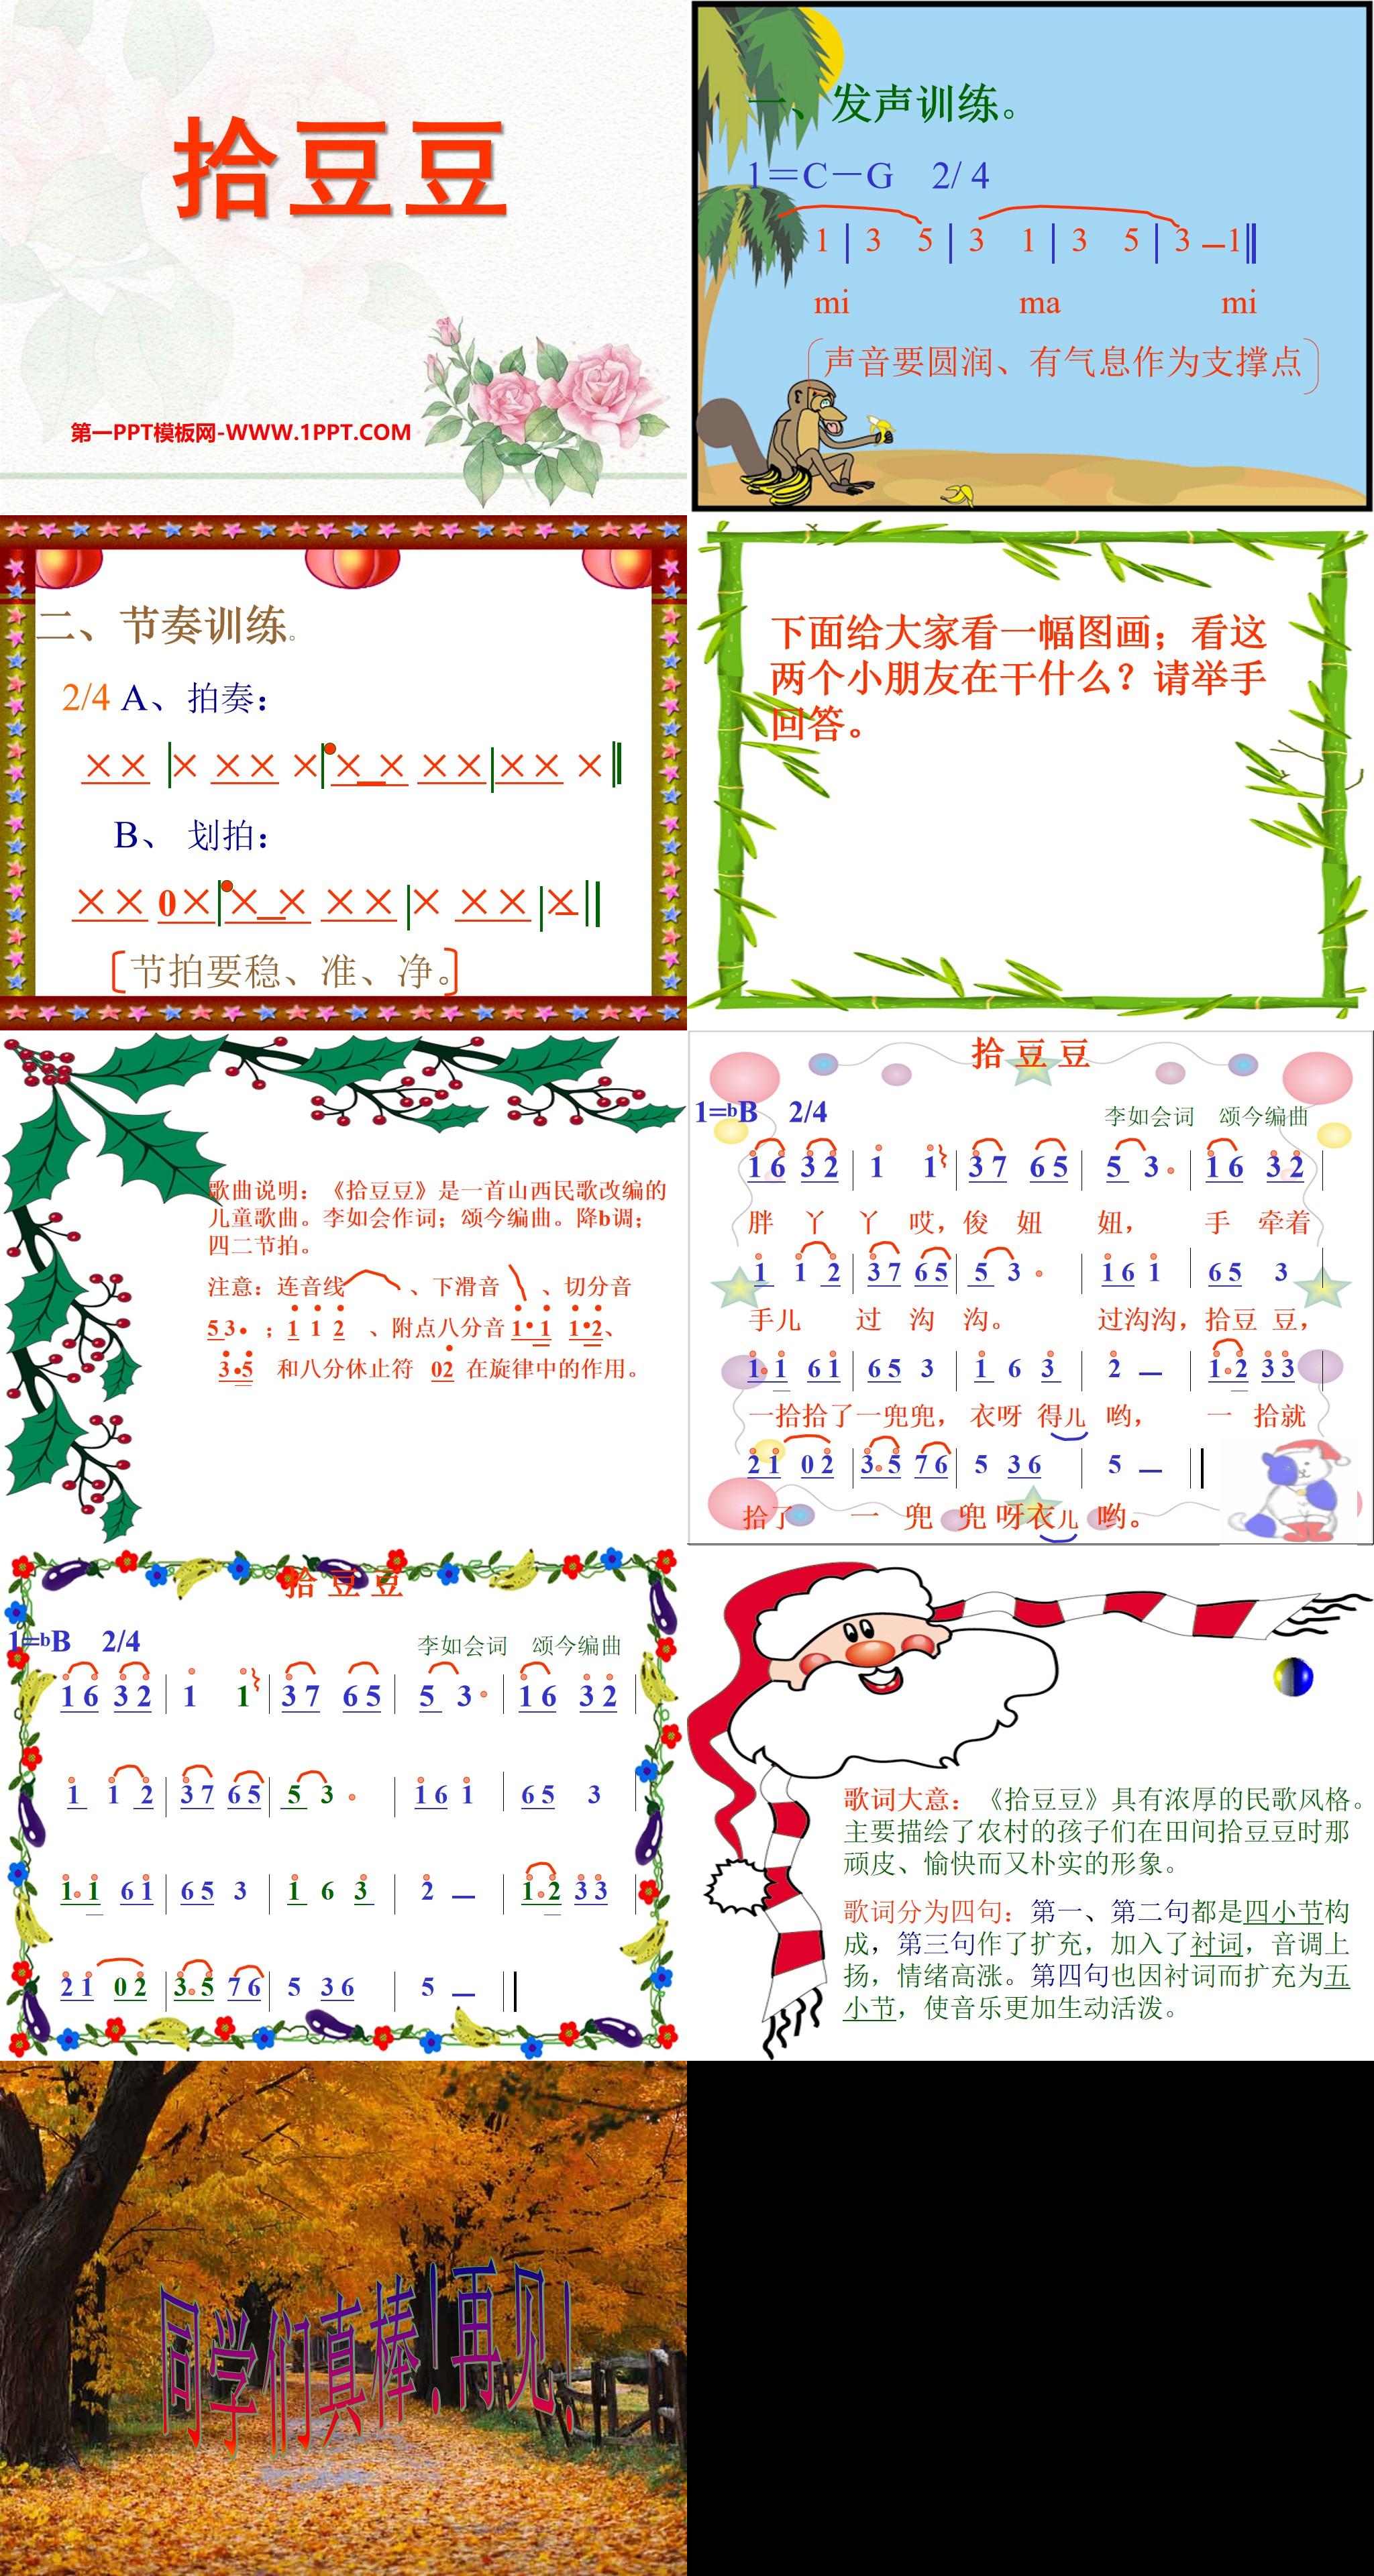 拾豆豆
第一PPT模板网-WWW.1PPT.COM
一、发声训练。
1＝C－G 2/ 4
1 | 3 5 | 3 1 | 3 5 | 3 — 1 ||
mi ma mi
声音要圆润、有气息作为支撑点
二、节奏训练。
2/4 A、拍奏：
×× | × ×× × | ×× ×× | ×× × ||
B、 划拍：
×× 0× | ×× ×× | × ×× | × — ||
[节拍要稳、准、净。]
下面给大家看一幅图画；看这
两个小朋友在干什么？请举手
回答。
歌曲说明：《拾豆豆》是一首山西民歌改编的
儿童歌曲。李如会作词；颂今编曲。降b调；
四二节拍。
注意：连音线 、下滑音 、切分音
5 3 • ；1 1 2 、附点八分音 1•1 1•2、
3•5 和八分休止符 02 在旋律中的作用。
拾 豆 豆
1=bB 2/4
李如会词 颂今编曲
1 6 3 2 | 1 1 | 3 7 6 5 | 5 3 • | 1 6 3 2 |
胖 丫 丫 哎，俊 妞 妞， 手 牵着
1 1 2 | 3 7 6 5 | 5 3 • | 1 6 1 | 6 5 3 |
手儿 过 沟 沟。 过沟沟，拾豆 豆，
1•1 6 1 | 6 5 3 | 1 6 3 | 2 — | 1•2 3 3 |
一拾拾了一兜兜， 衣呀 得儿 哟， 一 拾就
2 1 0 2 | 3•5 7 6 | 5 3 6 | 5 — |
拾了 一 兜 兜 呀衣儿 哟。
拾 豆 豆
1=bB 2/4
李如会词 颂今编曲
1 6 3 2 | 1 1 | 3 7 6 5 | 5 3 • | 1 6 3 2 |
1 1 2 | 3 7 6 5 | 5 3 • | 1 6 1 | 6 5 3
1•1 6 1 | 6 5 3 | 1 6 3 | 2 — | 1•2 3 3 |
2 1 0 2 | 3•5 7 6 | 5 3 6 | 5 — |
歌词大意：《拾豆豆》具有浓厚的民歌风格。
主要描绘了农村的孩子们在田间拾豆豆时那
顽皮、愉快而又朴实的形象。
歌词分为四句：第一、第二句都是四小节构
成，第三句作了扩充，加入了衬词，音调上
扬，情绪高涨。第四句也因衬词而扩充为五
小节，使音乐更加生动活泼。
同学们真棒！再见！